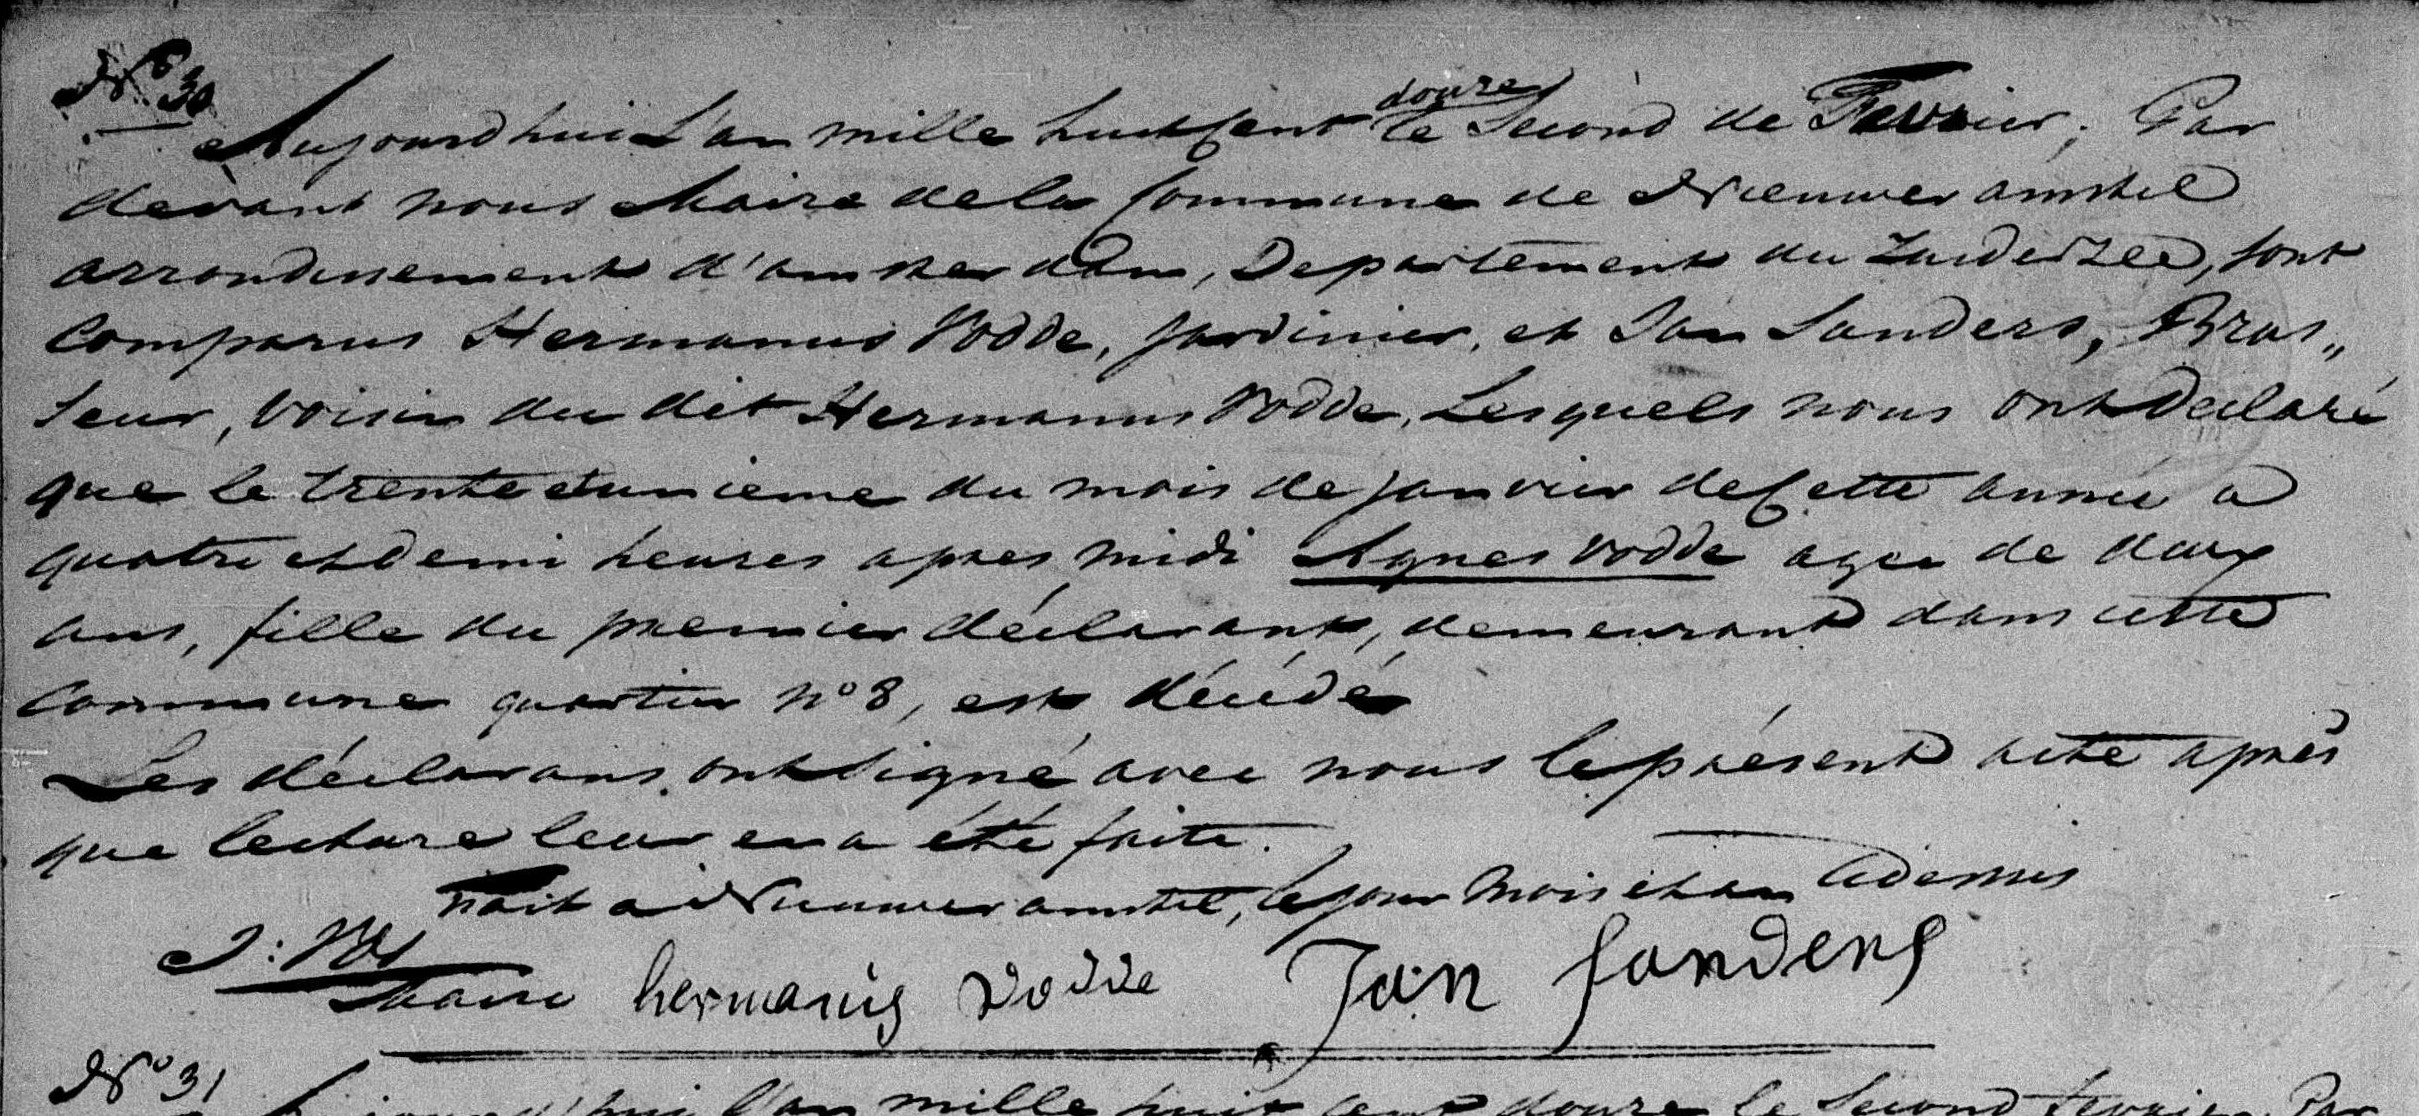 N° 30
Aujourdhui L'an mille huit Cent douze le Second de Fevrier, Par
devant nous Maire de la Commune de Nieuwer amstel
arrondissement d'amsterdam, Departement du Zuiderzee, sont
Comparus Hermanus Vodde, Jardinier, et Jan Sanders, Bras„
seur, voisin du dit Hermanus Vodde, Lesquels nous ont Declaré
que le trente et unieme du mois de janvier de Cette année a
quatre et demi heures apres midi Agnes Vodde agee de deux
ans, fille du premier déclarant, demeurant dans cette
Commune quartier n° 8, est décédé
Les déclarans ont Signé avec nous le présent acte après
que lecture leur en a été faite.
Fait a Nieuwer amstel, le jour Mois et an Cidessus
Maire hermanus Vodde Jan Sanders
N° 31
l'an mille huit cent douze le Second fevrier Par